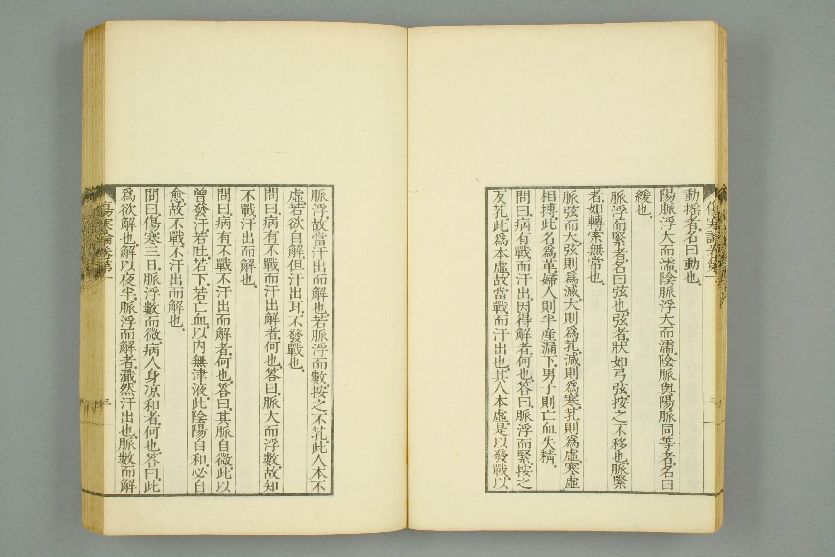 動搖者、名曰動也、
陽脈浮大而濡、陰脈浮大而濡、陰脈與陽脈同等者、名曰
緩也、
脈浮而緊者、名曰弦也、弦者、狀如弓弦、按之不移也、脈緊
者、如轉索無常也、
脈弦而大、弦則爲減、大則爲芤、減則爲寒、芤則爲虛、寒虛
相搏、此名爲革、婦人則半產漏下、男子則亡血失精、
問曰、病有戰而汗出、因得解者、何也、答曰、脈浮而緊、按之
反芤、此爲本虛、故當戰而汗出也、其人本虛、是以發戰、以
脈浮、故當汗出而解也、若脈浮而數、按之不芤、此人本不
虛、若欲自解、但汗出耳、不發戰也、
問曰、病有不戰而汗出解者、何也、答曰、脈大而浮數、故知
不戰汗出而解也、
問曰、病有不戰不汗出而解者、何也、答曰、其脈自微、此以
曾發汗、若吐、若下、若亡血、以內無津液、此陰陽自和、必自
愈、故不戰不汗出而解也、
問曰、傷寒三日、脈浮數而微、病人身涼和者、何也、答曰、此
爲欲解也、解以夜半、脈浮而解者、濈然汗出也、脈數而解
傷寒論卷第一